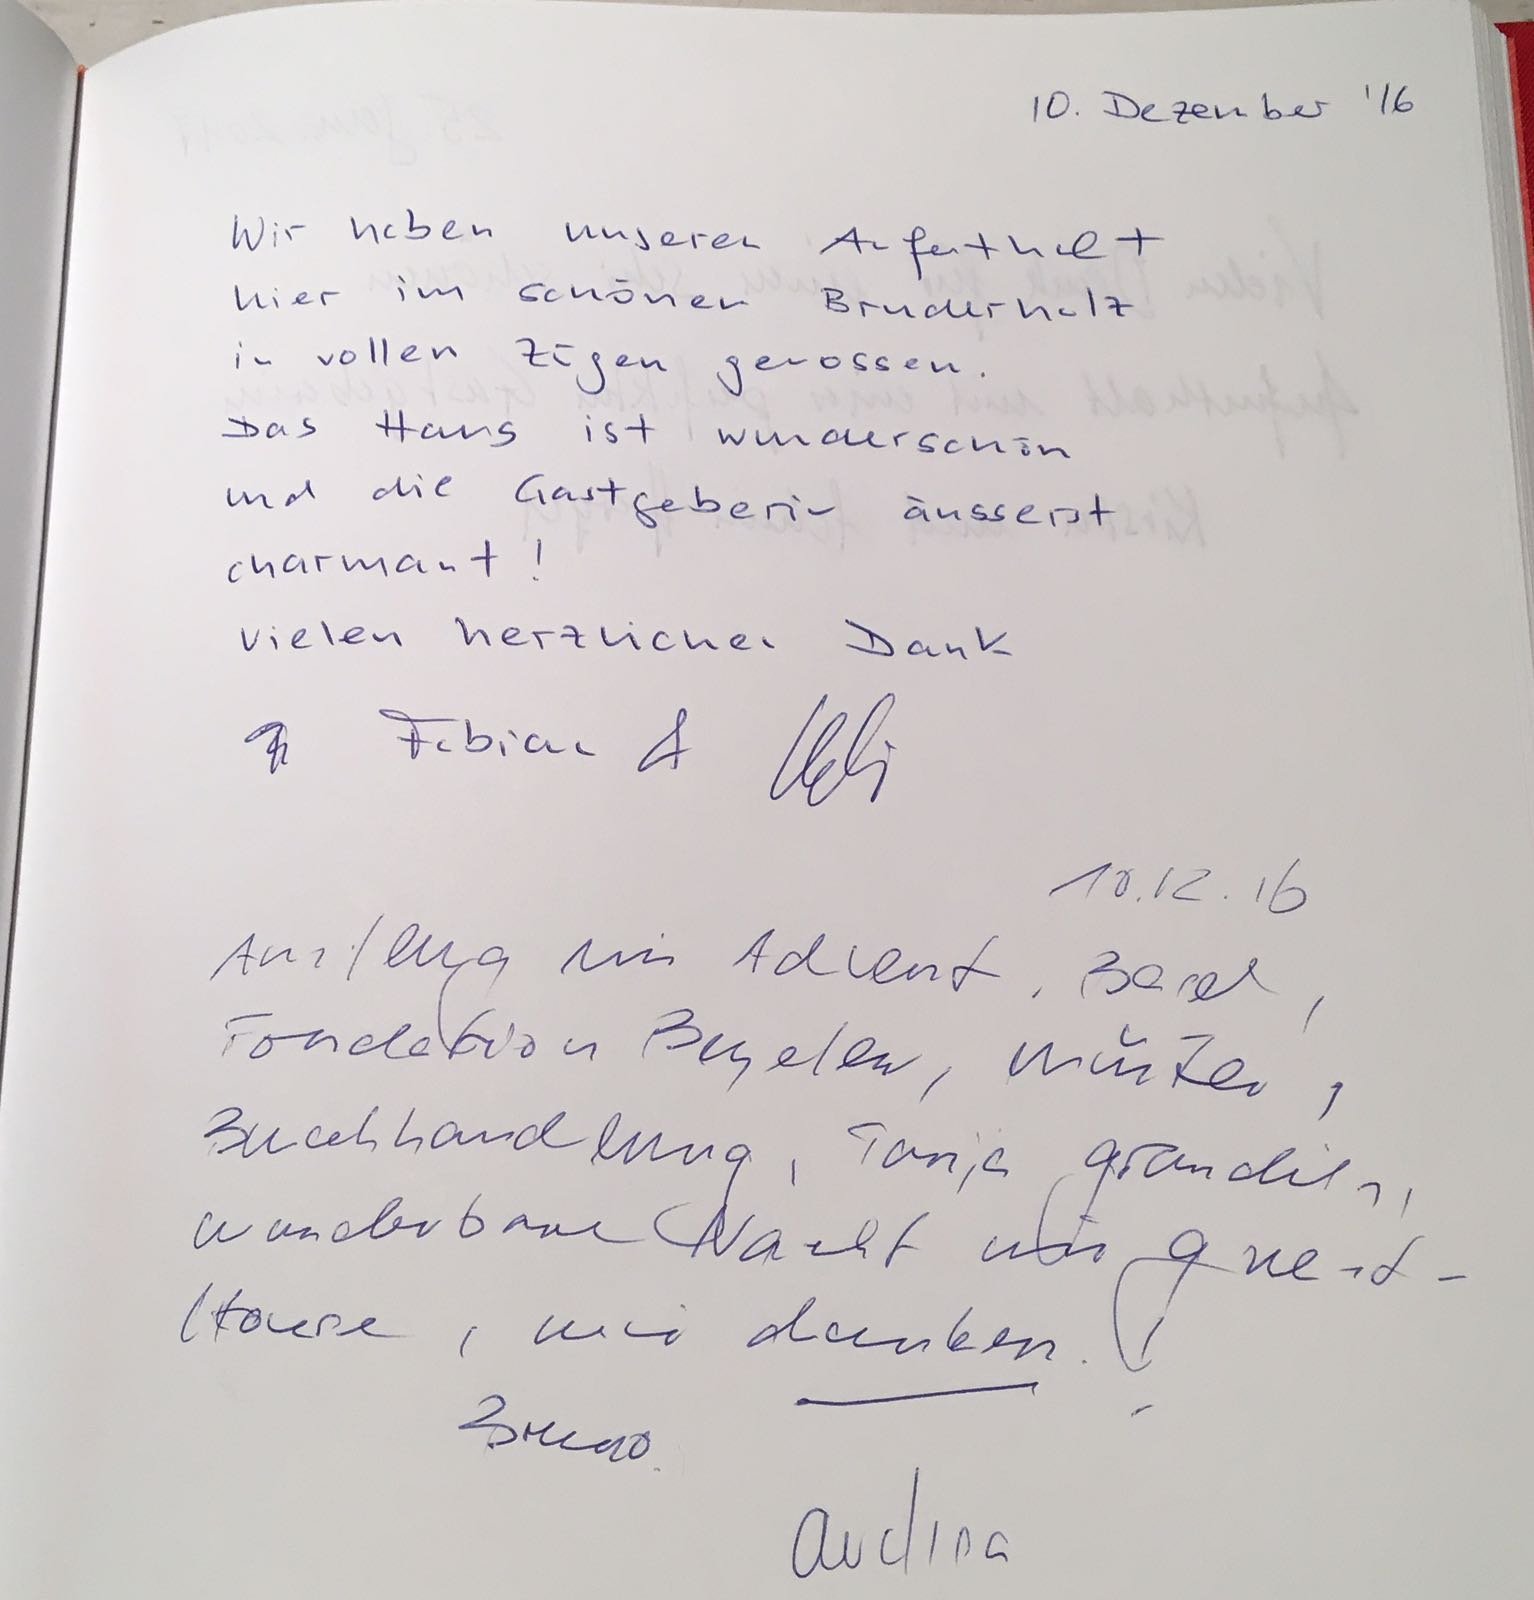 10. Dezember '16
Wir haben unseren Aufenthalt
hier im schönen Bruderholz
in vollen Zügen genossen.
Das Haus ist wunderschön
und die Gastgeberin äusserst
charmant!
vielen herzlichen Dank
Fabian &
10.12.16
Ausflug im Advent, Basel,
Fondation Beyeler, Münster,
Buchhandlung, Tanja Grandits,
wunderbare Nacht im Guest-
House, wir danken!
Bruno.